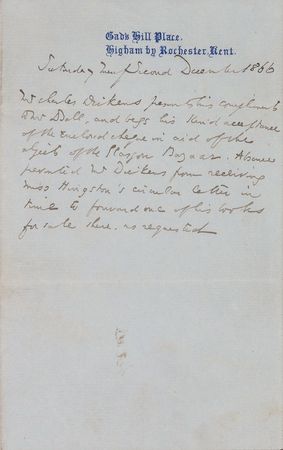 Gad's Hill Place.
Higham by Rochester, Kent.
Saturday Second December 1866
Mr Charles Dickens presents his compliments
to Mr Dell, and begs his kind acceptance
of the enclosed cheque in aid of the
objects of the Glasgow Bazaar. Absence
prevented Mr Dickens from receiving
Miss Hingston's circular letter in
time to forward one of his books
for sale there, as requested